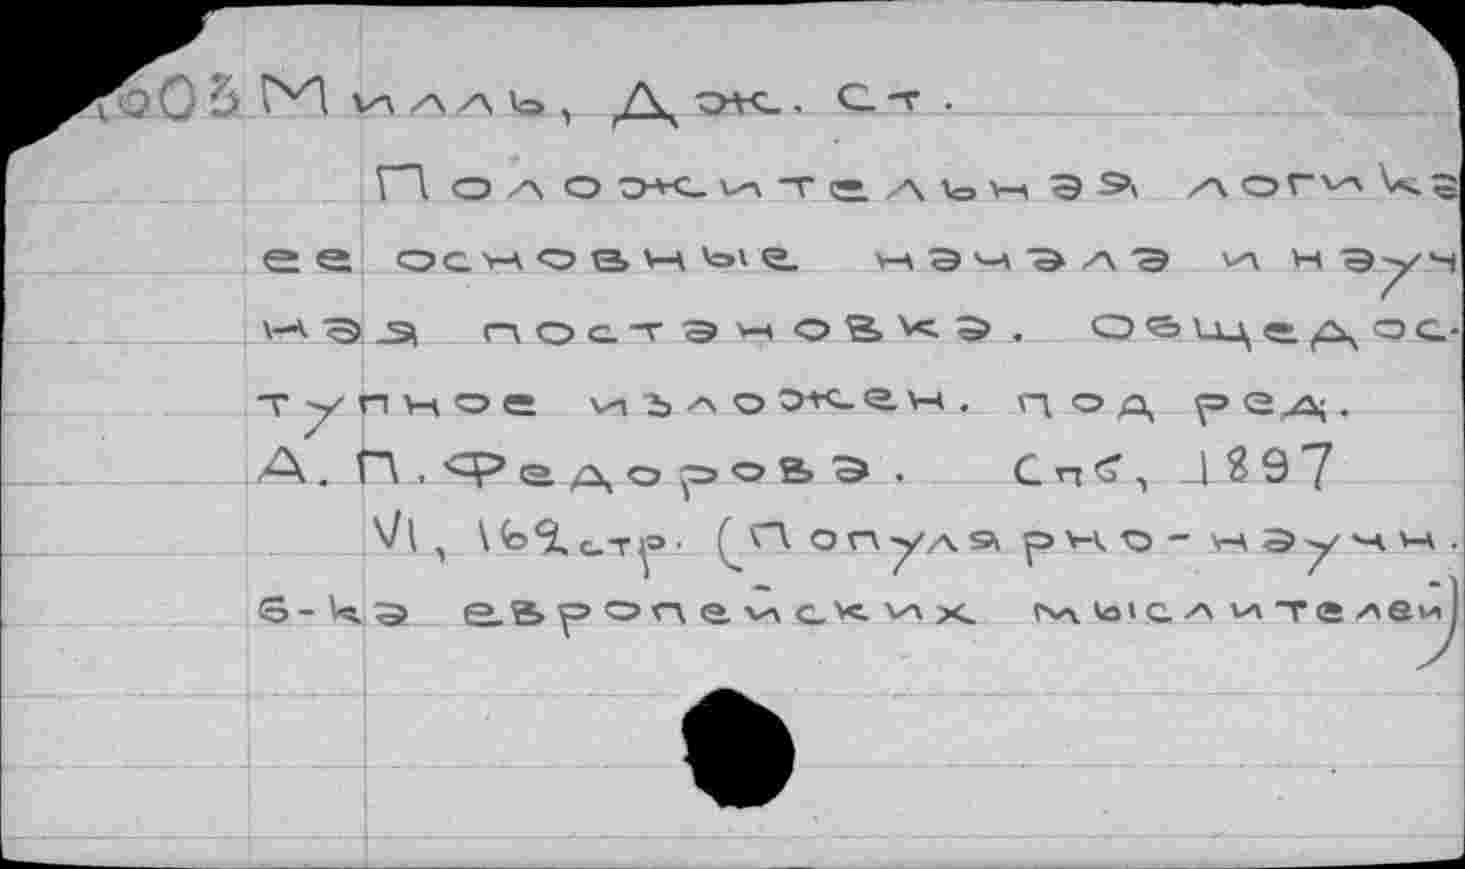 Милль, Дж. Ст.
Положительная логика
ее основные начала и науч
ная постановка. Общедос-
тупное изложен. под ред.
А. П. Федорова. Спб, 1897
VI, стр. (Популярно-научн.
б-ка европейских мыслителей)